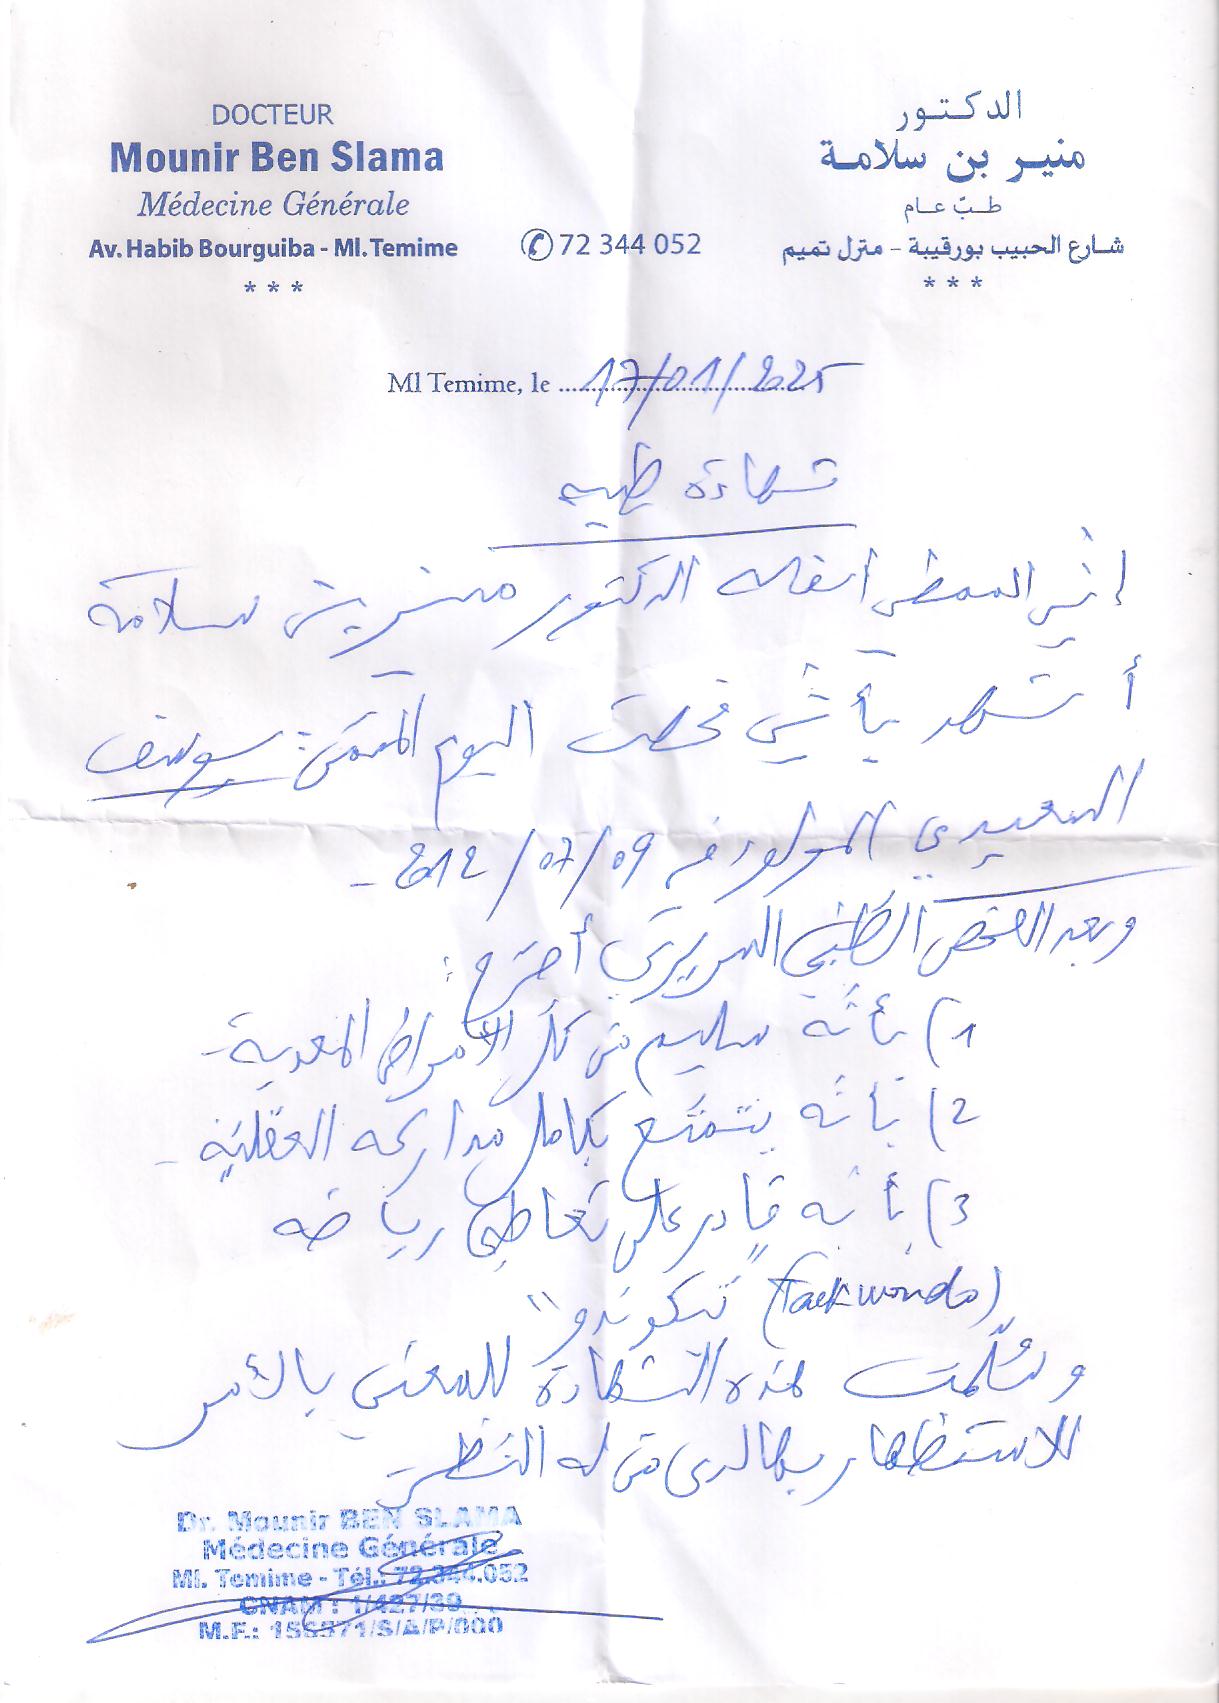 DOCTEUR
Mounir Ben Slama
Médecine Générale
Av. Habib Bourguiba - Ml. Temime
* * *
72 344 052
الدكتور
منير بن سلامة
طبّ عام
شارع الحبيب بورقيبة - منزل تميم
* * *
Ml Temime, le 17/01/2025
شهادة طبية
إنّي الممضي أسفله الدكتور منير بن سلامة
أشهد بأنّي فحصت اليوم المسمّى: يوسف
السعيدي المولود في 09/07/2012 -
وبعد الفحص الطبّي السريري أصرّح:
1) بأنّه سليم من كلّ الأمراض المعدية -
2) بأنّه يتمتّع بكامل مداركه العقليّة -
3) بأنّه قادر على تعاطي رياضة
(Taekwondo) "تيكوندو"
وسُلّمت هذه الشهادة للمعني بالأمر
للاستظهار بها لدى من له النّظر -
Dr. Mounir BEN SLAMA
Médecine Générale
Ml. Temime - Tél.: 72.344.052
CNAM : 1/427/39
M.F.: /S/A/P/000